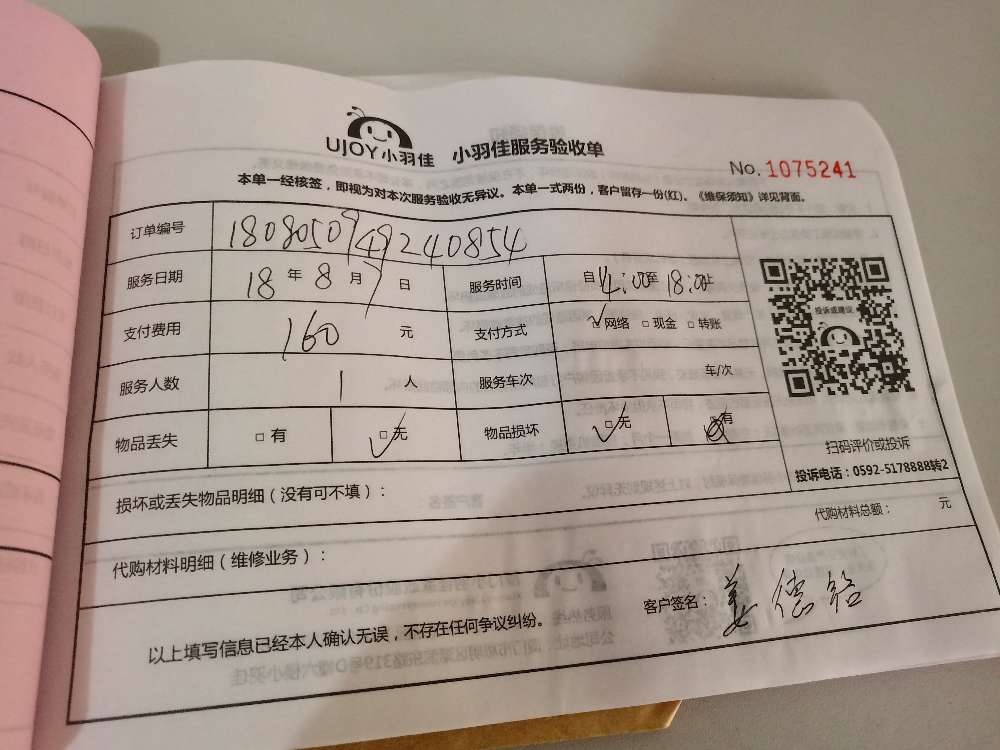 UJOY小羽佳 小羽佳服务验收单
No. 1075241
本单一经核签，即视为对本次服务验收无异议。本单一式两份，客户留存一份(红)。《维保须知》详见背面。
订单编号 1808050949240854
服务日期 18 年 8 月 7 日 服务时间 自14:00至18:00止
支付费用 160 元 支付方式 ✓网络 □现金 □转账
投诉或建议
服务人数 1 人 服务车次 车/次
物品丢失 □有 ✓□无 物品损坏 ✓□无 □有
扫码评价或投诉
投诉电话：0592-5178888转2
损坏或丢失物品明细（没有可不填）：
代购材料明细（维修业务）： 代购材料总额： 元
以上填写信息已经本人确认无误，不存在任何争议纠纷。 客户签名：姜德铭